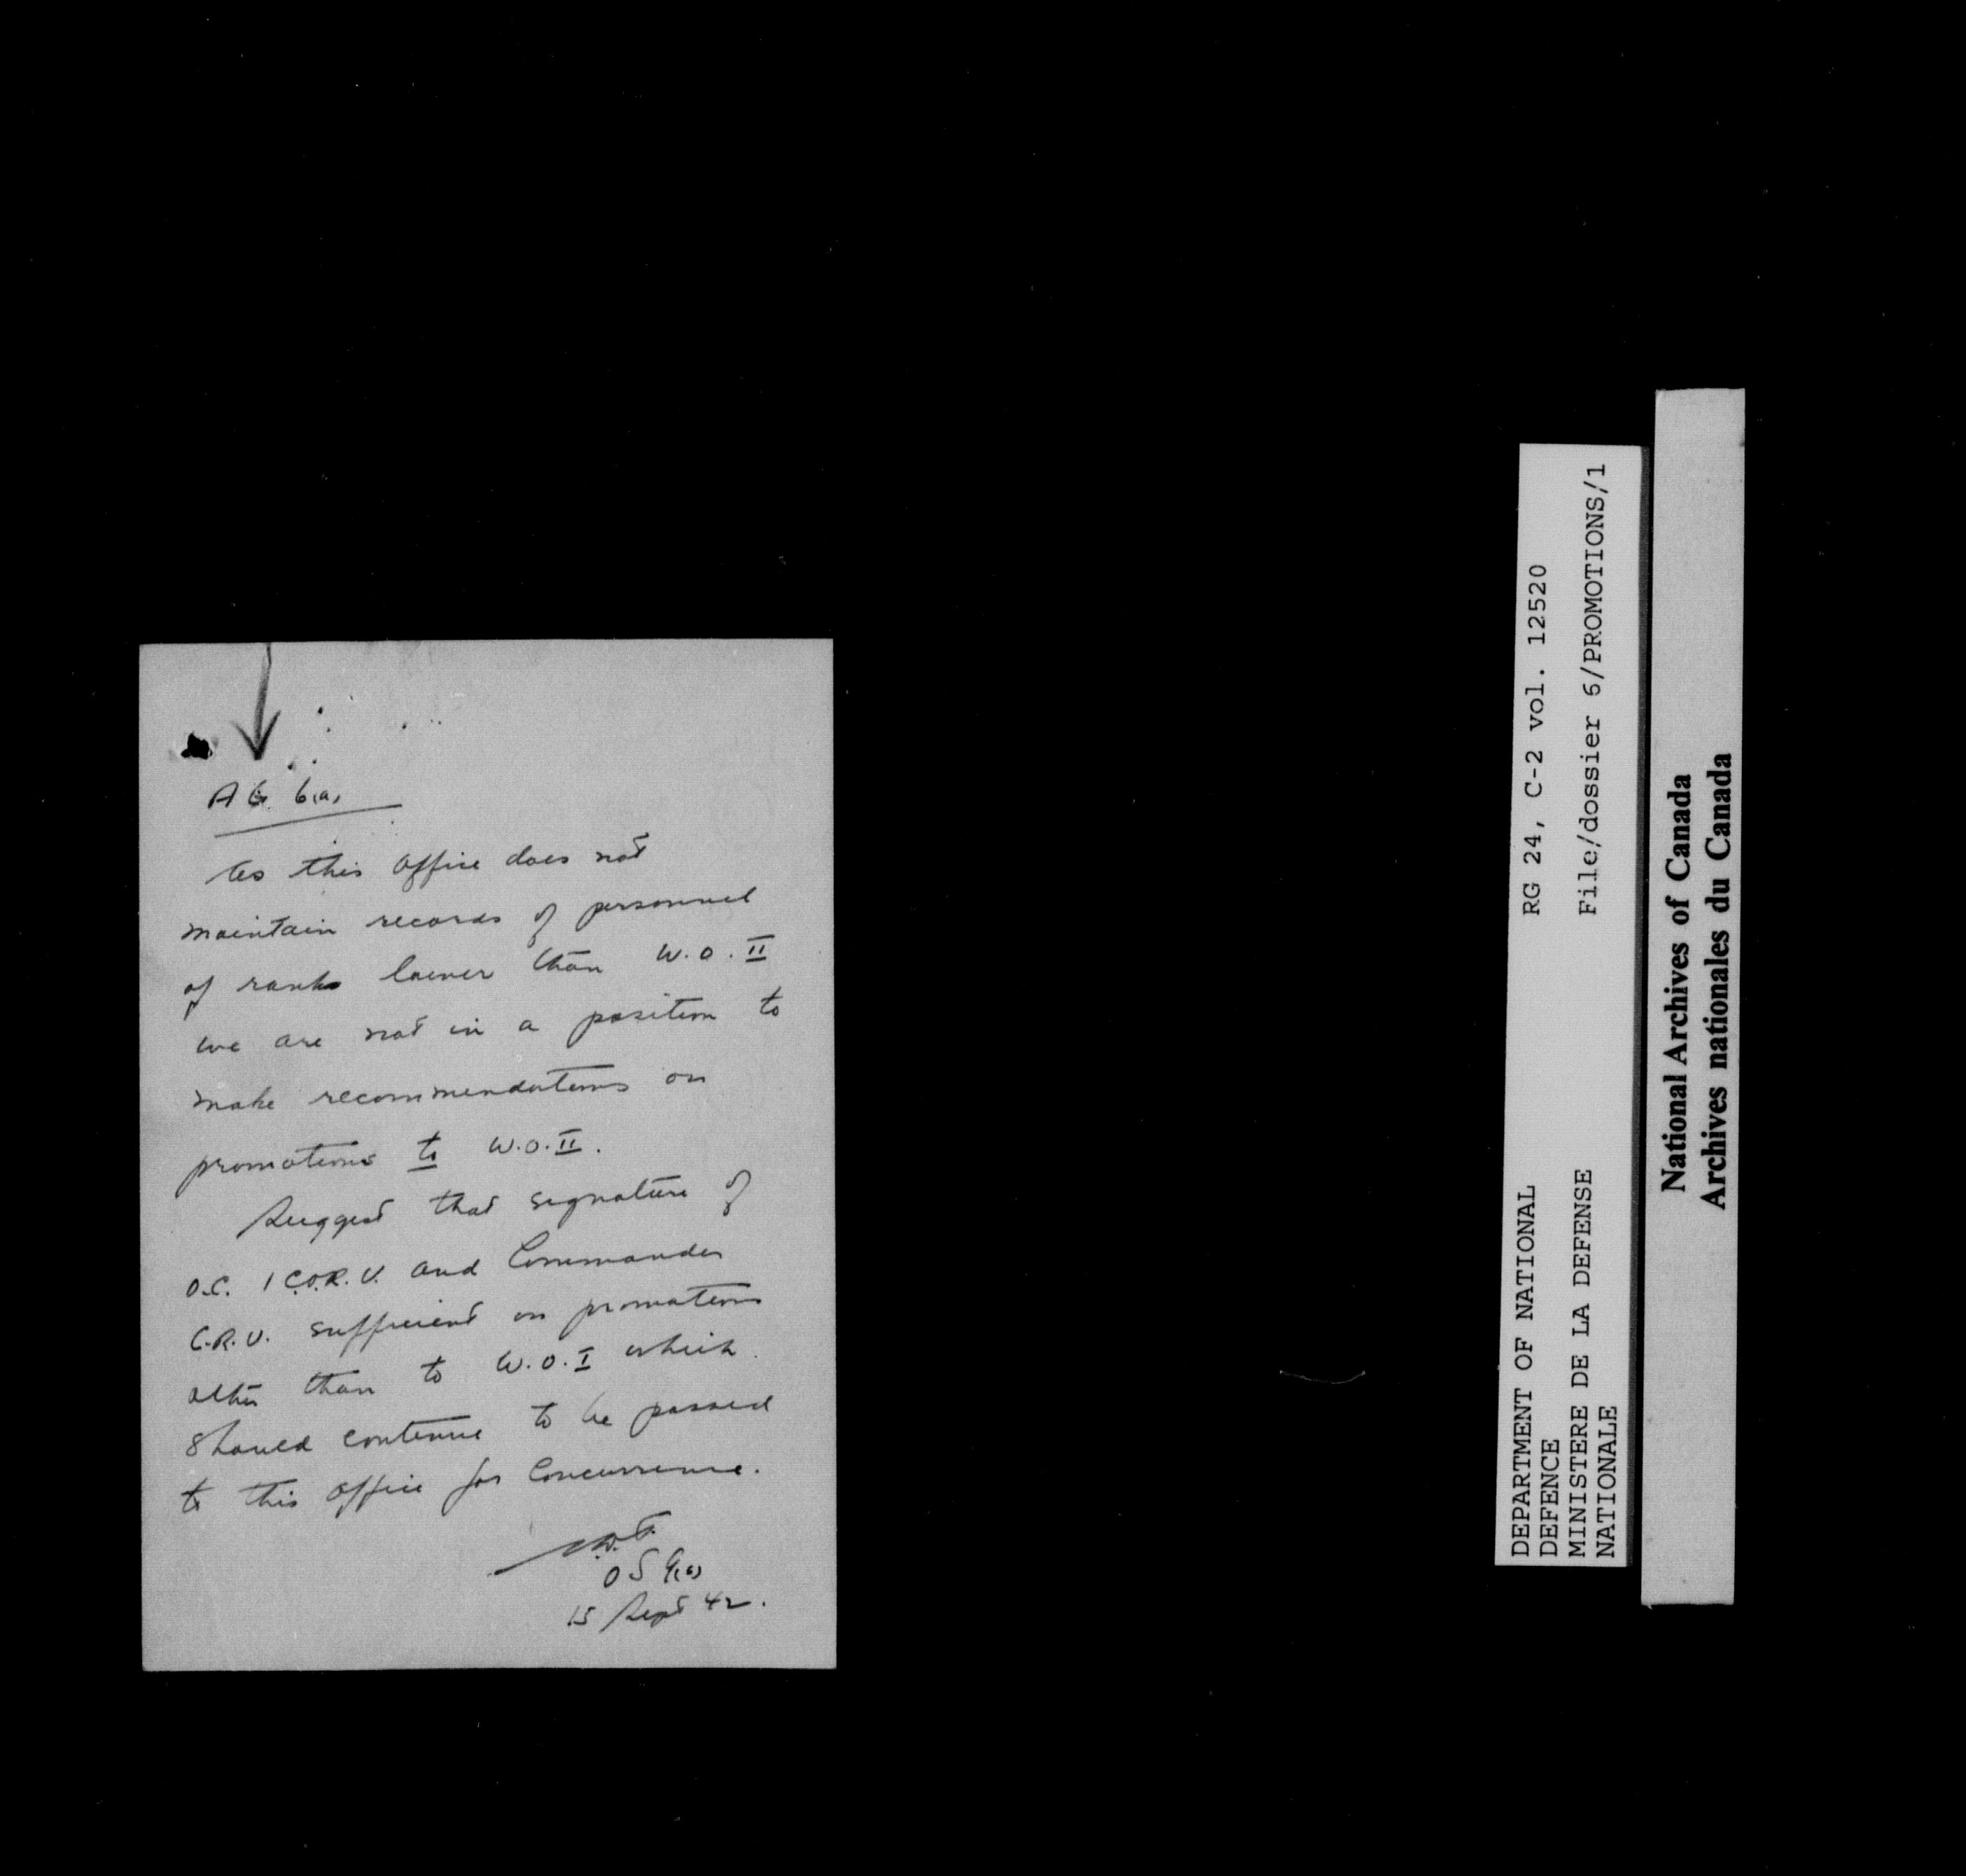 AG 6(a)
As this office does not
maintain records of personnel
of ranks lower than W.O. II
we are not in a position to
make recommendations on
promotions to W.O. II.
Suggest that signature of
O.C. 1 C.O.R.U. and Commander
C.R.U. sufficient on promotions
other than to W.O. I which
should continue to be passed
to this office for concurrence.
15 Sept 42.
DEPARTMENT OF NATIONAL
DEFENCE
MINISTERE DE LA DEFENSE
NATIONALE
RG 24, C-2 vol. 12520
File/dossier 6/PROMOTIONS/1
National Archives of Canada
Archives nationales du Canada